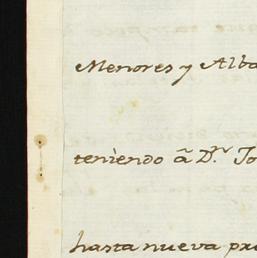 Menores y Alba
teniendo ã D.ⁿ Jo
hasta nueva pro